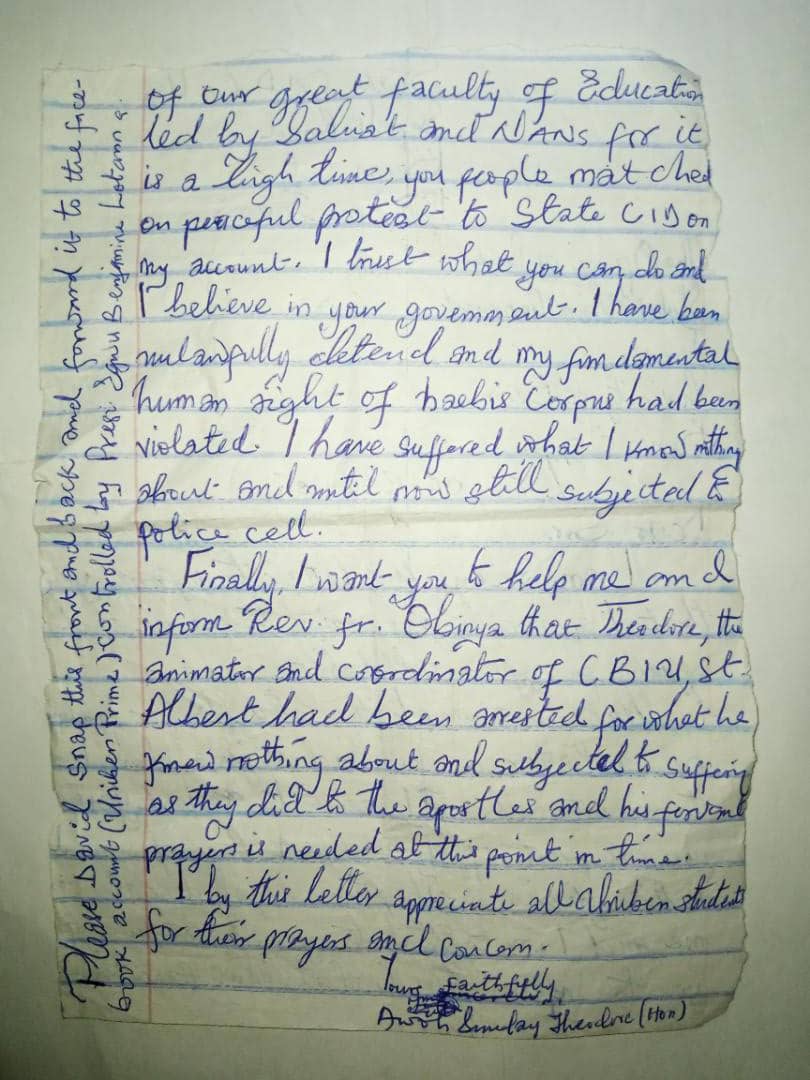 of our great faculty of Education
led by Saliat and NANS for it
is a high time, you people matched
on peaceful protest to State CID on
my account. I trust what you can do and
I believe in your government. I have been
unlawfully detend and my fundamental
human right of haebis Corpus had been
violated. I have suffered what I know nothing
about and until now still subjected to
police cell.
Finally, I want you to help me and
inform Rev. fr. Obinya that Theodore, the
animator and coordinator of CBIU, St.
Albert had been arrested for what he
knew nothing about and subjected to suffering
as they did to the apostles and his fervent
prayers is needed at this point in time.
I by this letter appreciate all Uniben students
for their prayers and concern.
Yours faithfully
Awoh Sunday Theodore (Hon)
Please David snap this front and back and forward it to the face-
book account (Uniben Prime) controlled by Presi Egwu Benjamine